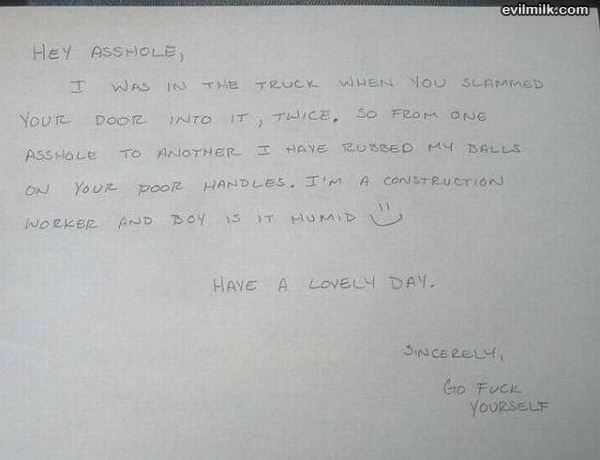 evilmilk.com
HEY ASSHOLE,
I WAS IN THE TRUCK WHEN YOU SLAMMED
YOUR DOOR INTO IT, TWICE. SO FROM ONE
ASSHOLE TO ANOTHER I HAVE RUBBED MY BALLS
ON YOUR DOOR HANDLES. I'M A CONSTRUCTION
WORKER AND BOY IS IT HUMID
HAVE A LOVELY DAY.
SINCERELY,
GO FUCK
YOURSELF